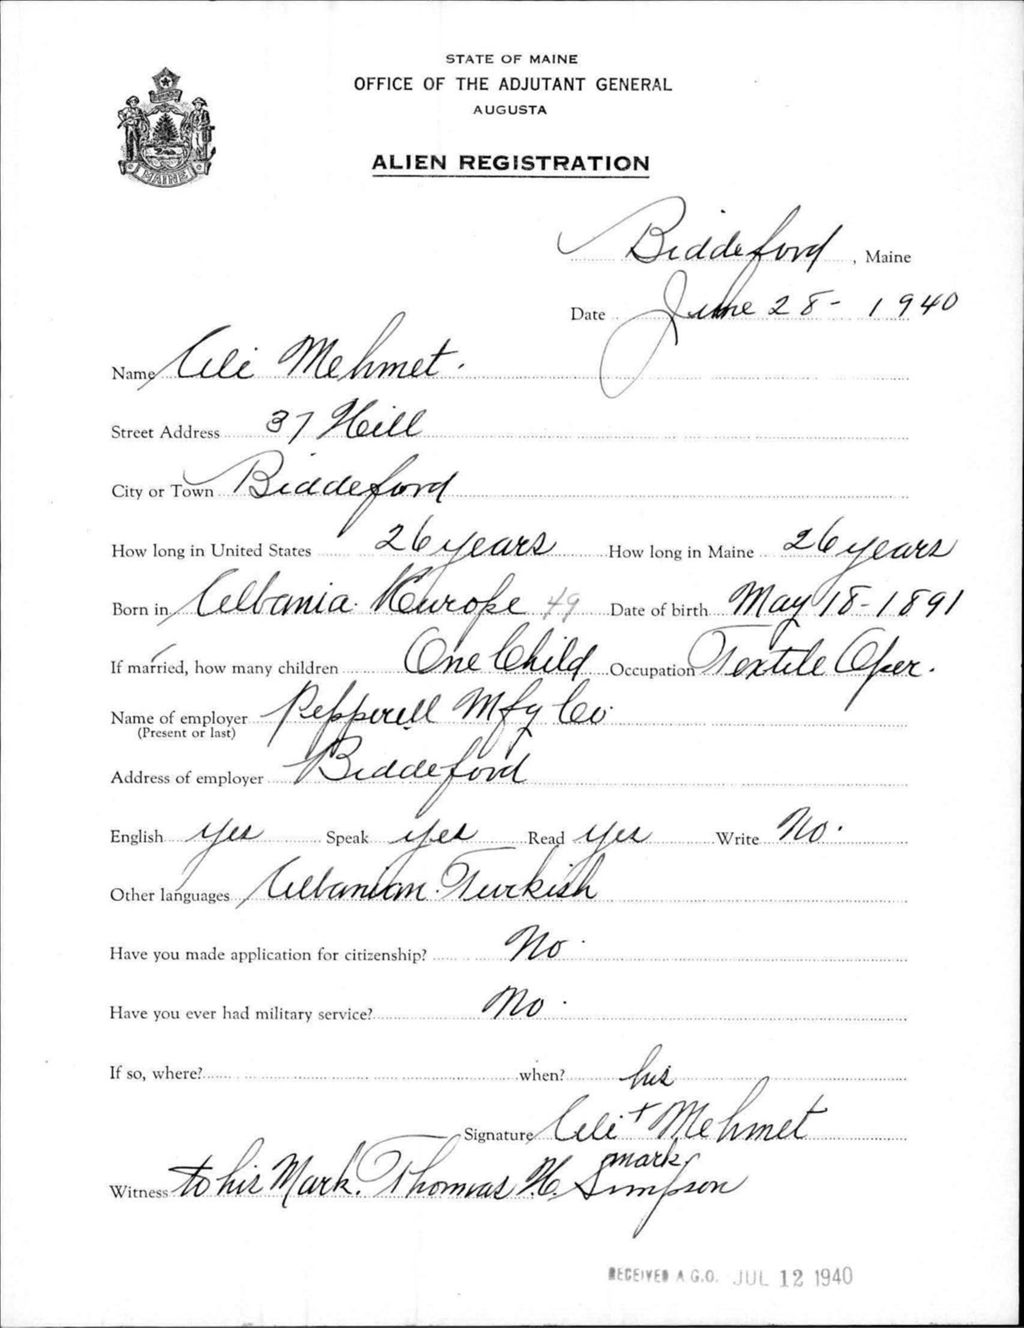 STATE OF MAINE
OFFICE OF THE ADJUTANT GENERAL
AUGUSTA
ALIEN REGISTRATION
MAINE
Biddeford, Maine
Date June 28 - 1940
Name Ali Mehmet.
Street Address 37 Hill
City or Town Biddeford
How long in United States 26 years How long in Maine 26 years
Born in Albania. Europe 49 Date of birth May 18 - 1891
If married, how many children One Child Occupation Textile Oper.
Name of employer Pepperell Mfg Co.
(Present or last)
Address of employer Biddeford
English yes Speak yes Read yes Write No.
Other languages Albanian. Turkish
Have you made application for citizenship? No.
Have you ever had military service? No.
If so, where? when?
his
Signature Ali + Mehmet
mark
Witness to his Mark. Thomas H. Simpson
RECEIVED A.G.O. JUL 12 1940